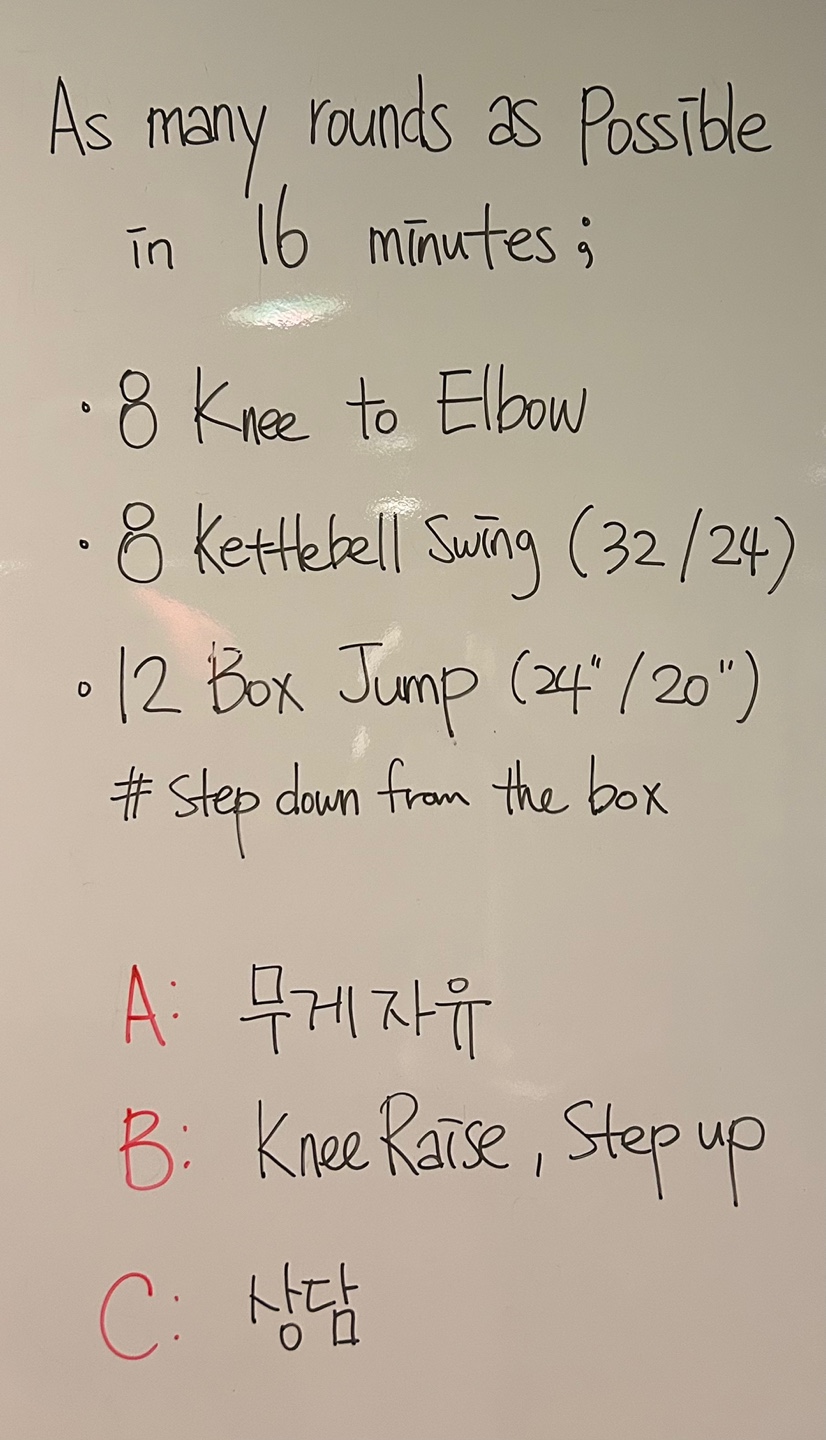 As many rounds as Possible
in 16 minutes;
· 8 Knee to Elbow
· 8 Kettlebell Swing (32/24)
· 12 Box Jump (24"/20")
# Step down from the box
A: 무게 자유
B: Knee Raise, Step up
C: 상담